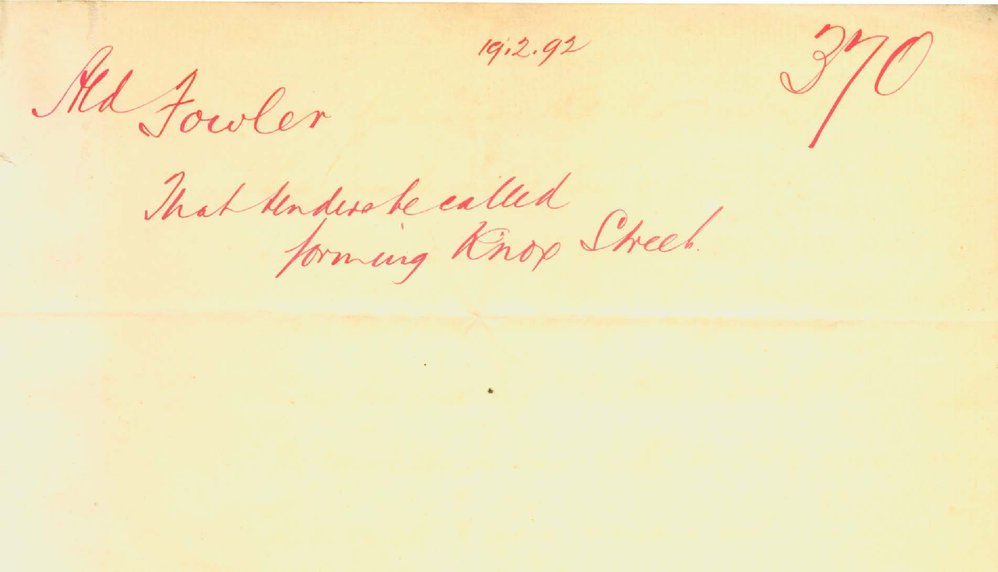 19.2.92
370
Ald Fowler
That tenders be called
forming Knox Street.